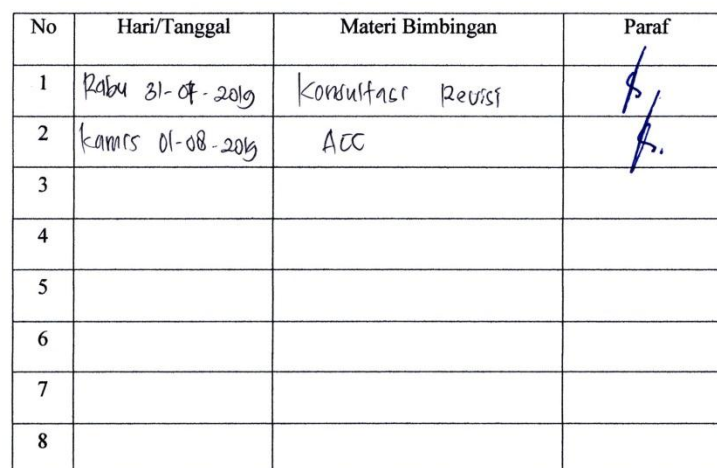 No Hari/Tanggal Materi Bimbingan Paraf
1 Rabu 31-07-2019 Konsultasi Revisi
2 Kamis 01-08-2019 ACC
3
4
5
6
7
8